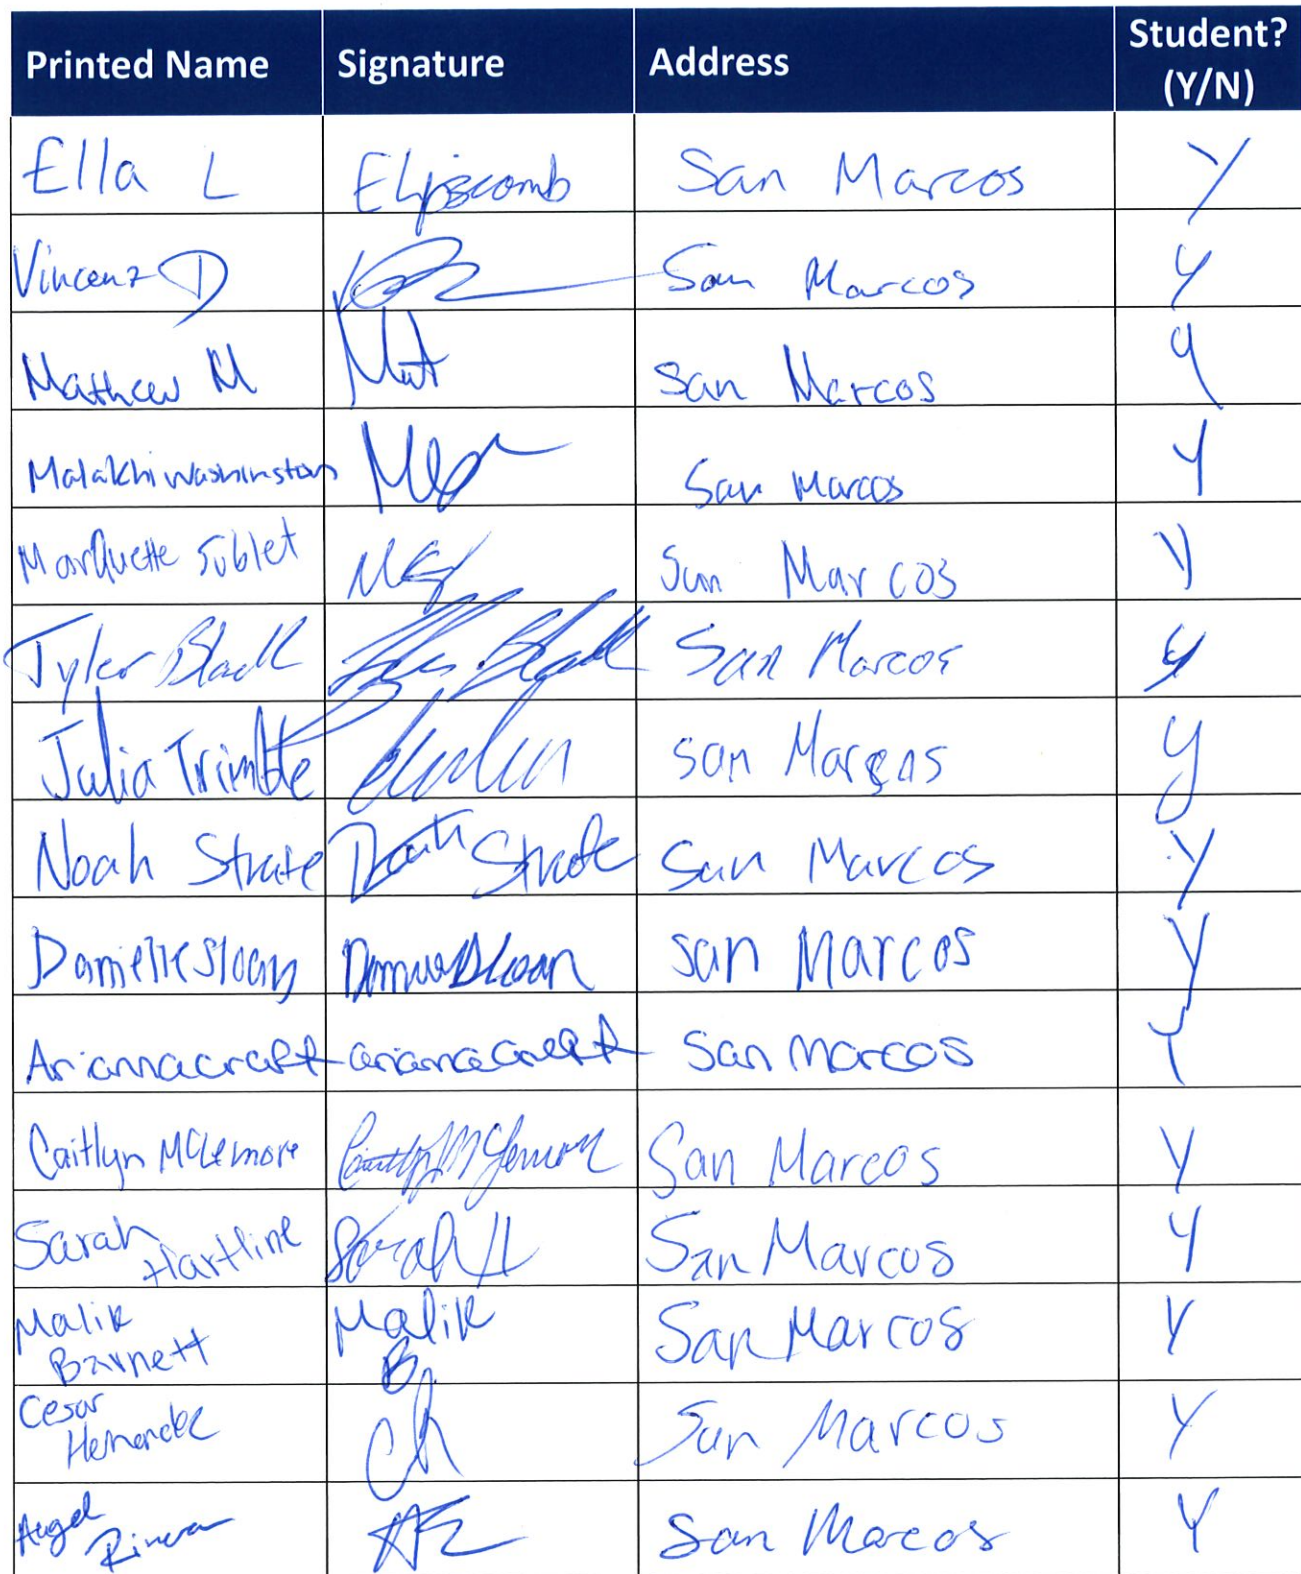 Printed Name Signature Address Student? (Y/N)
Ella L Elipscomb San Marcos Y
Vincenz D San Marcos Y
Mathew M Mat San Marcos Y
Malakhi Washinston San Marcos Y
MarQuette Sublet San Marcos Y
Tyler Black Tyler Black San Marcos Y
Julia Trimble San Marcos y
Noah Strate Strate San Marcos Y
Danielle Sloan Sloan San Marcos Y
Arianna craft arianna craft San Marcos Y
Caitlyn McLemore Caitlyn McLemore San Marcos Y
Sarah Hartline Sarah H San Marcos Y
Malik Barnett Malik B San Marcos Y
Cesar CH San Marcos Y
Angel Rivera San Marcos Y